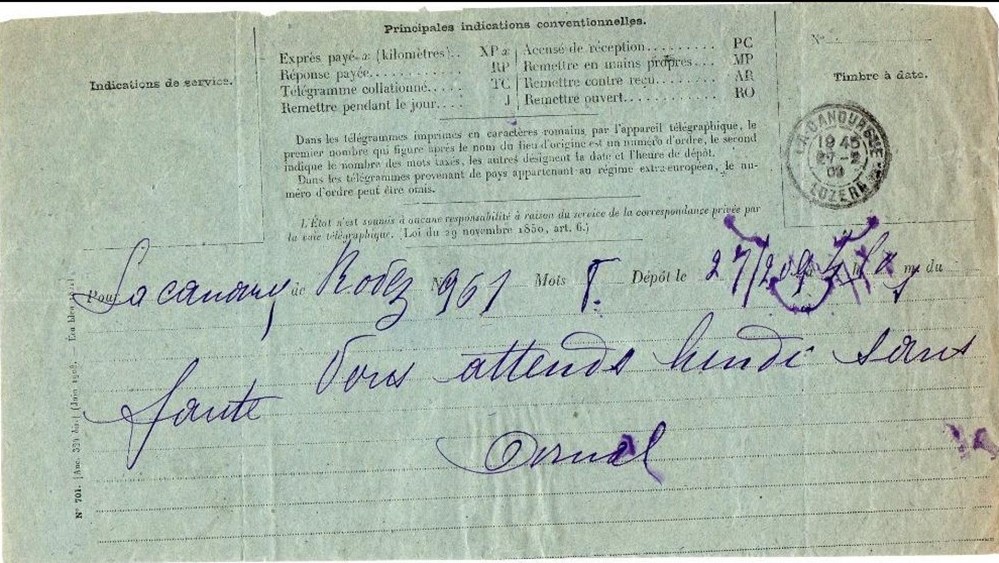 Principales indications conventionnelles.
Indications de service.
Exprès payé x (kilomètres).. XP x
Réponse payée............ RP
Télégramme collationné.... TC
Remettre pendant le jour.... J
Accusé de réception......... PC
Remettre en mains propres... MP
Remettre contre reçu....... AR
Remettre ouvert............ RO
N°
Timbre à date.
Dans les télégrammes imprimés en caractères romains par l'appareil télégraphique, le
premier nombre qui figure après le nom du lieu d'origine est un numéro d'ordre, le second
indique le nombre des mots taxés, les autres désignent la date et l'heure de dépôt.
Dans les télégrammes provenant de pays appartenant au régime extra-européen, le nu-
méro d'ordre peut être omis.
LA CANOURGUE
19 45
27-2
09
LOZERE
L'État n'est soumis à aucune responsabilité à raison du service de la correspondance privée par
la voie télégraphique. (Loi du 29 novembre 1850, art. 6.)
Pour Lacanourg de Rodez N° 961 Mots 8. Dépôt le 27/2 09 h m du
Vous attends lundi sans
faute
N° 701. (Anc. 539 bis.) (Juin 1908.)